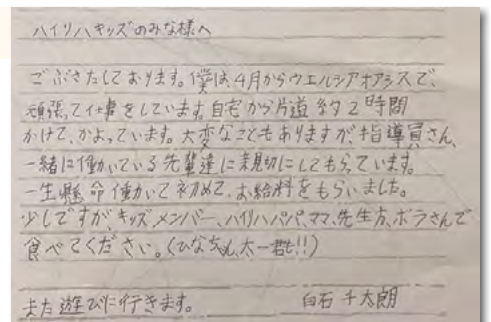 ハイリハキッズのみな様へ
ごぶさたしております。僕は、4月からウエルシアオアシスで、
頑張って仕事をしています。自宅から片道約2時間
かけて、かよっています。大変なこともありますが、指導員さん、
一緒に働いている先輩達に親切にしてもらっています。
一生懸命働いて初めて、お給料をもらいました。
少しですが、キッズメンバー、ハイリハパパ、ママ、先生方、ボラさんで
食べてください。(ひなちゃん、太一君も!!)
また遊びに行きます。 白石 千太朗